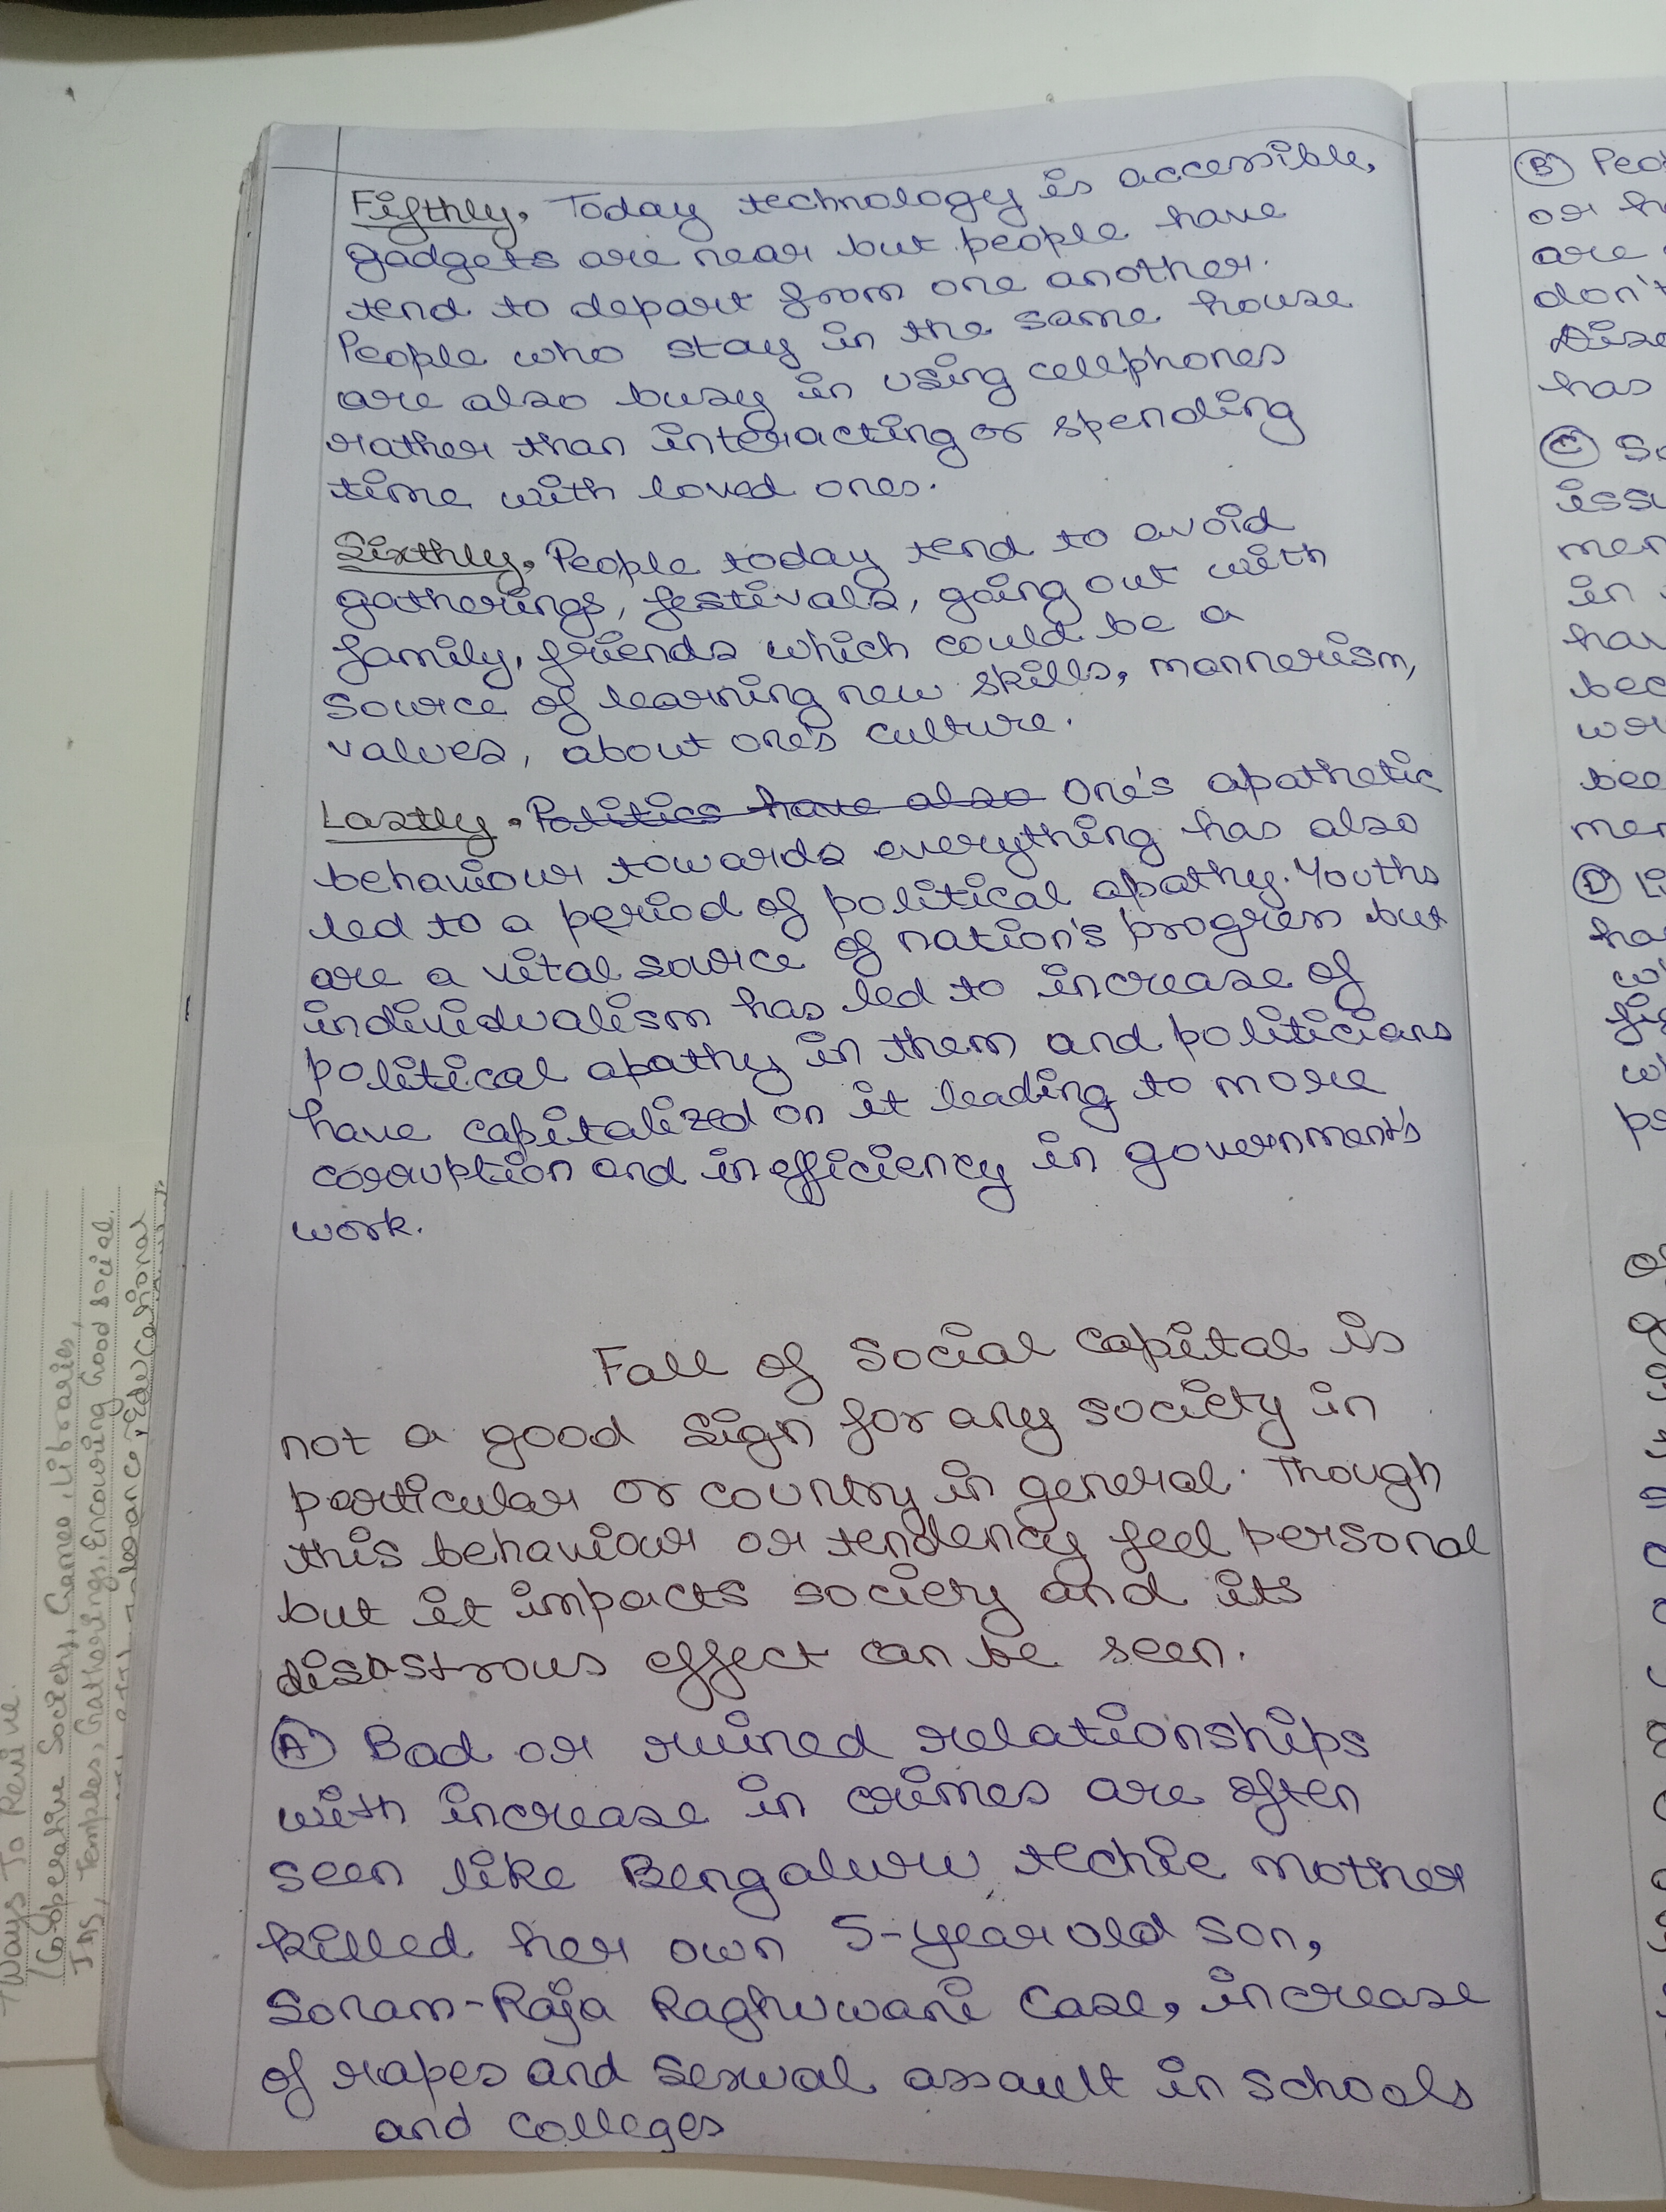 Fifthly, Today technology is accessible,
gadgets are near but people have
tend to depart from one another.
People who stay in the same house
are also busy in using cellphones
rather than interacting or spending
time with loved ones.
Sixthly, People today tend to avoid
gatherings, festivals, going out with
family, friends which could be a
source of learning new skills, mannerism,
values, about one's culture.
Lastly, Politics have also One's apathetic
behaviour towards everything has also
led to a period of political apathy. Youths
are a vital source of nation's progress but
individualism has led to increase of
political apathy in them and politicians
have capitalized on it leading to more
corruption and inefficiency in government's
work.
Fall of Social Capital is
not a good sign for any society in
particular or country in general. Though
this behaviour or tendency feel personal
but it impacts society and its
disastrous effect can be seen.
(A) Bad or ruined relationships
with increase in crimes are often
seen like Bengaluru techie mother
killed her own 5-year old son,
Sonam-Raja Raghuwani Case, increase
of rapes and sexual assault in schools
and colleges
(B)
or
are
don't
has
(C)
in
(D)
Ways To Revive.
(Co-operative Society, Games, Libraries,
Temples, Gatherings, Encouring Good social
Educational